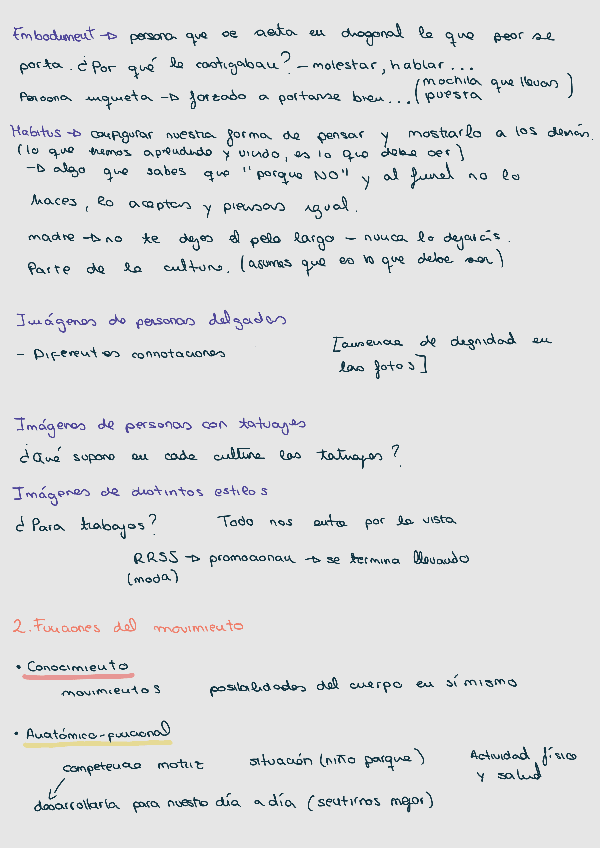 Embodiment → persona que se sienta en diagonal le que peor se
porta. ¿Por qué le castigaban? - molestar, hablar...
Persona inquieta → forzado a portarse bien... (mochila que llevas puesta)
Habitus → configurar nuestra forma de pensar y mostrarlo a los demás.
(lo que hemos aprendido y vivido, es lo que debe ser)
→ algo que sabes que "porque NO" y al final no lo
haces, lo aceptas y piensas igual.
madre → no te dejes el pelo largo - nunca lo dejarás.
Parte de la cultura. (asumes que es lo que debe ser)
Imágenes de personas delgadas
- Diferentes connotaciones [ausencia de dignidad en
las fotos]
Imágenes de personas con tatuajes
¿Qué supone en cada cultura los tatuajes?
Imágenes de distintos estilos
¿Para trabajos? Todo nos entra por la vista
RRSS → promocionan → se termina llevando
(moda)
2. Funciones del movimiento
• Conocimiento
movimientos posibilidades del cuerpo en sí mismo
• Anatómico-funcional
competencia motriz situación (niño parque) Actividad físico
y salud
desarrollarla para nuestro día a día (sentirnos mejor)